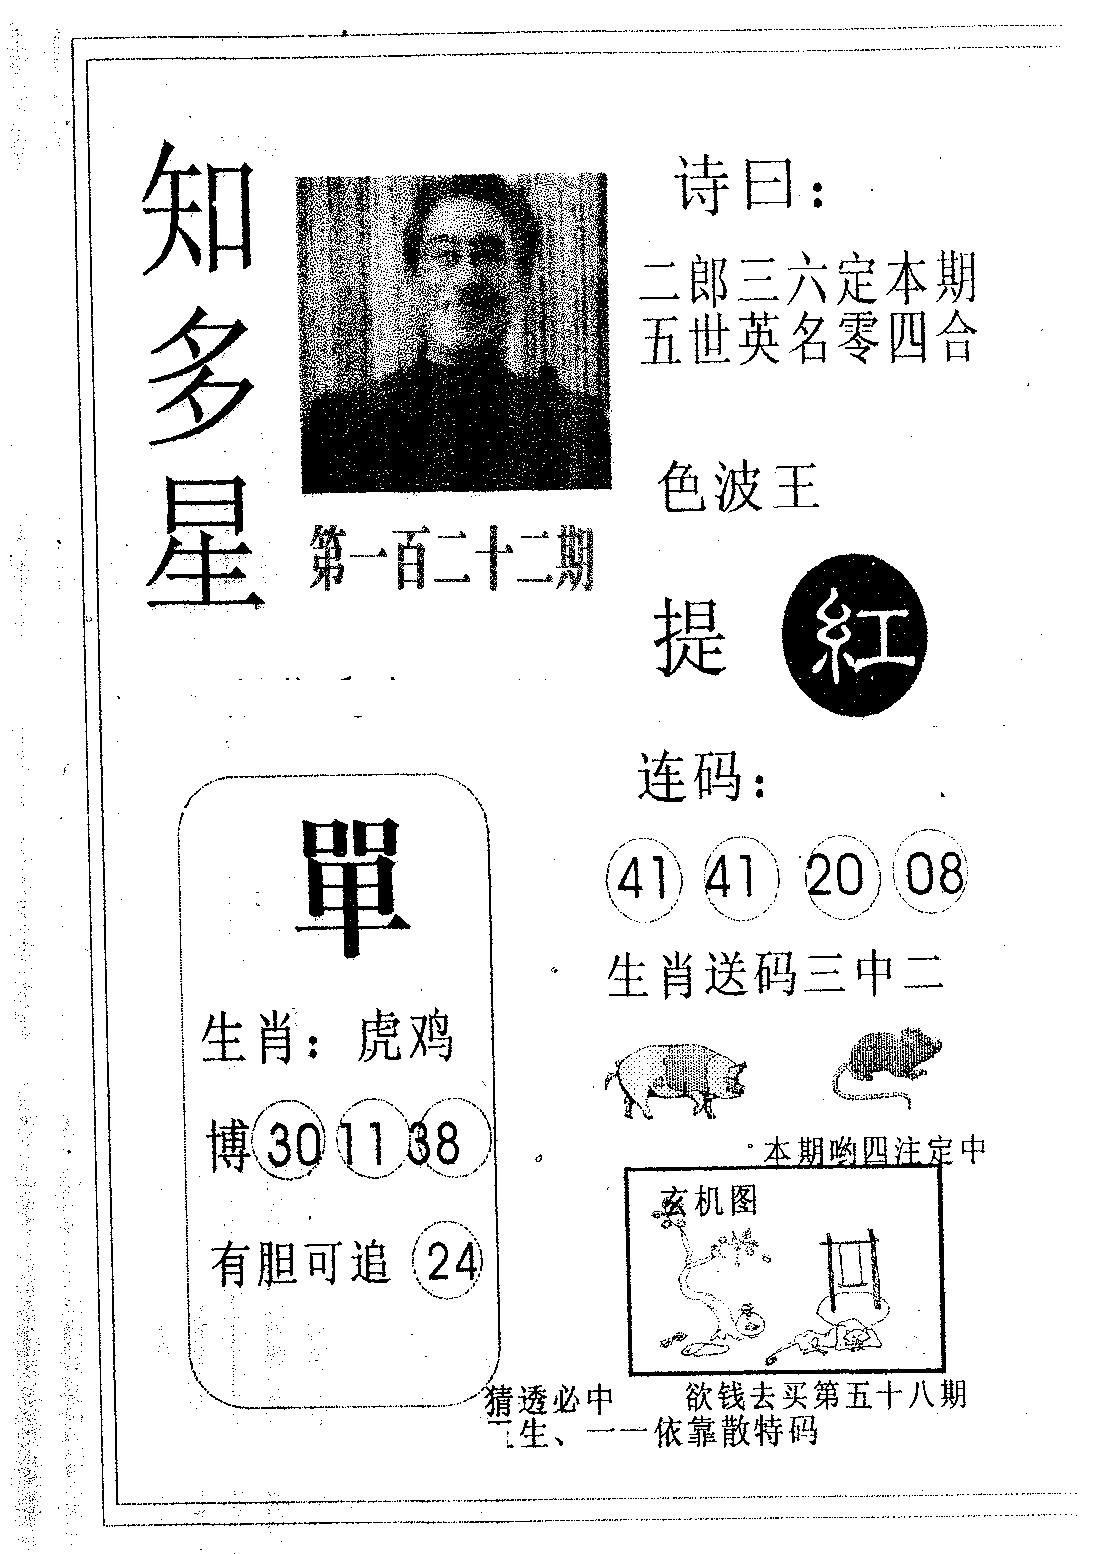 知多星
第一百二十二期
诗曰：
二郎三六定本期
五世英名零四合
色波王
提 紅
连码：
41 41 20 08
生肖送码三中二
單
生肖：虎鸡
博 30 11 38
有胆可追 24
本期哟四注定中
玄机图
猜透必中 欲钱去买第五十八期
生、一一依靠散特码